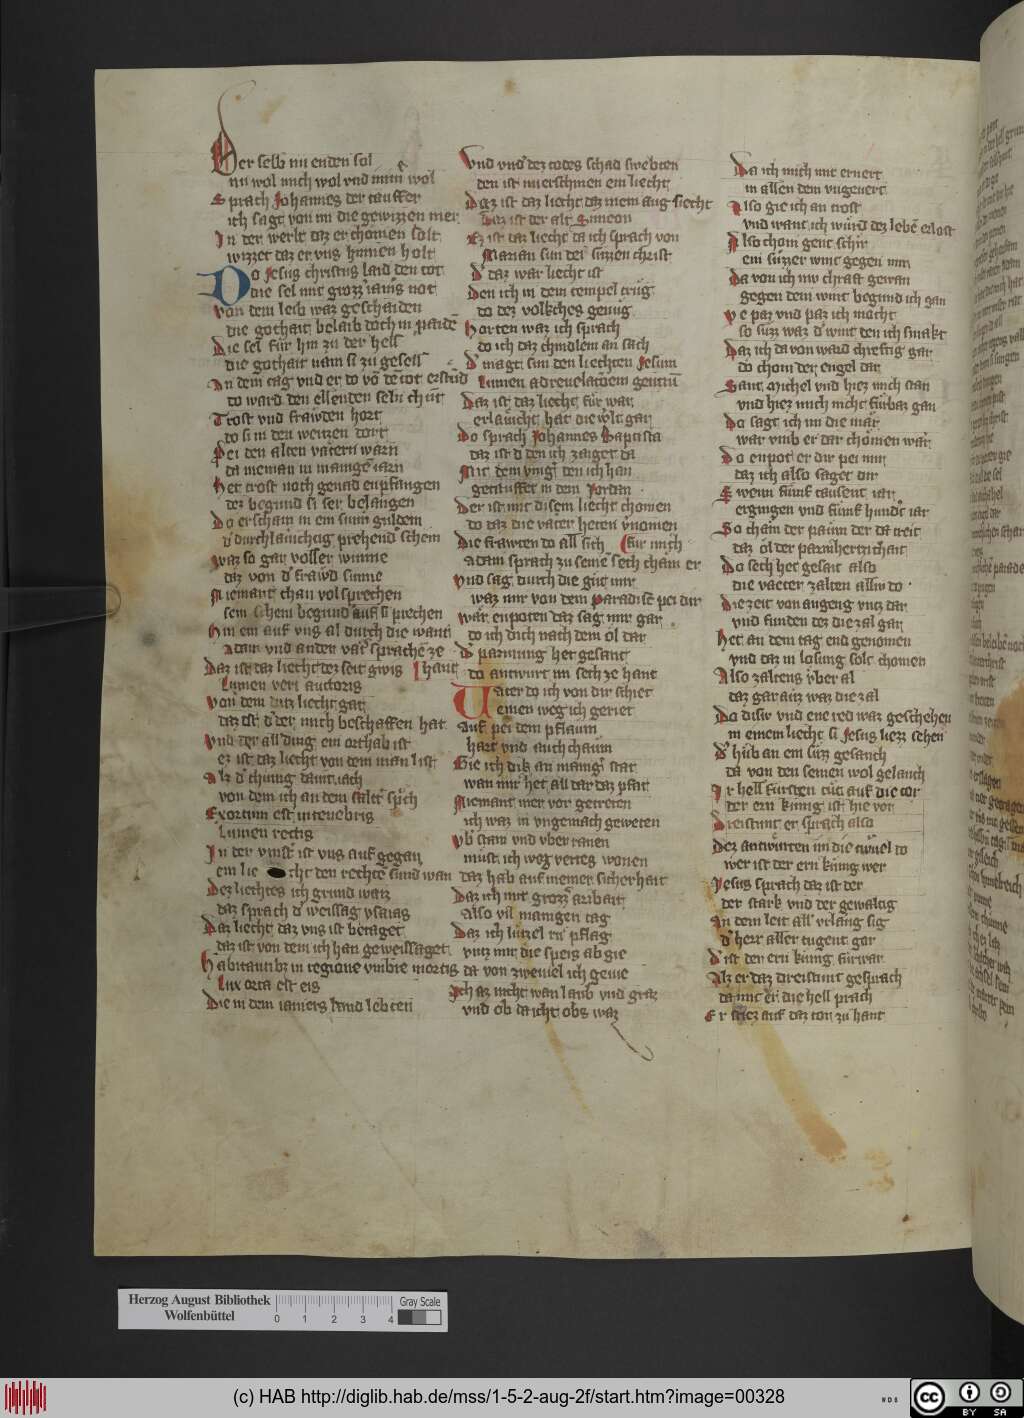 Der selb nu enden sol
nu wol mich wol vnd mim wol
Sprach Johannes der tauffer
ich sagt von im die gewizzen mer
In der werlt daz er chomen solt
wizzet daz er vns hinnen holt
Do Jesus christus laid den tot
die sel mit grozz iamers not
von dem leib waz geschaiden
die gothait belaib doch in paiden
Die sel fuͤr hin zu der hell
die gothait nam si zu gesell
An dem tag vnd er do võ dẽ tot erstuͤnd
do ward den ellenden selñ chuͤnt
Trost vnd frawden hort
do si in den weitzen dort
Pei den alten vaͤtern warñ
da nieman in manigẽ iarn
Het trost noch genad enpfangen
dez begund si ser belangen
Do erschain in ein sunn guldein
d' durchlaͤuchtig prehend' schein
Waz so gar voller wunne
daz von d' frawd sunne
Niemant chan vol sprechen
sein schein begund auf si prechen
Hin ein auf vns al durch die want
Adam vnd ander vaͤt' sprachẽ ze hant
Daz ist daz liecht dez seit gwis
Lumen veri auctoris
Von dem ditz liecht gat
daz ist d' der mich beschaffen hat
Vnd der all ding ein orthab ist
ez ist daz liecht von dem man list
Alz d' chunig dauit iach
von dem ich an dem salt' sp'ch
Exortum est in tenebris
Lumen rectis
In der vinst' ist vns auf gegan
ein lie cht den rechtẽ sund wan
Dez liechtes ich grund waiz
daz sprach d' weissag ysaias
Daz liecht daz vns ist betaget
daz ist von dem ich han geweissaget
Habitantibz in regione vmbre mortis
Lux orta est eis
Die in dem iamers land lebten
Vnd vnd' dez todes schad swebten
den ist nu erschinen ein liecht
Daz ist daz liecht daz mein aug siecht
Daz ist der alt Simeon
Ez ist daz liecht da ich sprach von
Marian sun der suͤzzen christ
d' daz war liecht ist
Den ich in dem tempel truͤg
do dez volkches genug
Horten waz ich sprach
do ich daz chindlein an sach
D' magt sun den liechten Jesum
Lumen ad reuelatoem gentiũ
Daz ist daz liecht fuͤr war
erlauͤcht hat die w'lt gar
Do sprach Johannes Baptista
daz ist d' den ich zaiget da
Mit dem ving' den ich han
getauffet in dem Jordan
Der ist mit disem liecht chomen
do daz die vater heten v'nomen
Die frawten do all sich
Adam sprach zu seinẽ sech chain er fuͤr mich
Vnd sag durch die guͤt mir
waz mir von dem Paradisẽ pei dir
Waͤr enpoten daz sag mir gar
do ich dich nach dem oͤl dar
D' parmung het gesant
do antwurt im seth ze hant
Vater do ich von dir schiet
einen weg ich geriet
Auf pei dem pflaum
hart vnd auch chaum
Gie ich dik an manig' stat
wan mir het all dar daz pfat
Niemant mer vor getreten
ich waz in vngemach geweten
Vb' stain vnd vber ranen
must ich weg vertes wonen
daz hab auf meiner sicherhait
Daz ich mit grozz' arbait
Also vil manigen tag
Daz ich luͤtzel ru' pflag
vntz mir die speis ab gie
da von zweiuel ich geuie
Ich az nicht wan laub vnd graz
vnd ob da icht obs waz
Da ich mich mit ernert
in allen dem vngeuert
Also gie ich an trost
vnd want ich wuͤrd dez lebẽ erlost
Also chom gent schir
ein suͤzzer wint gegen mir
Da von ich nw chraft gewan
gegen dem wint begund ich gan
Ye paz vnd paz ich mocht
so suͤzz waz d' wint den ich smakt
Daz ich da von ward chreftig gar
do chom der engel dar
Sant Michel vnd hiez mich stan
vnd hiez mich nicht fuͤrbaz gan
Do sagt ich im die maͤr
war vmb er dar choͤmen waͤr
Do enpot er dir pei mir
daz ich also saget dir
Swenn fuͤnf tausent iar
ergingen vnd fuͤnf hund't iar
So chaͤm der paum der da treit
daz oͤl der parmhertzichait
Do sech het gesait also
die vaeter zalten allw do
Die zeit von angeng vntz dar
vnd funden dez die zal gar
Het an dem tag end genomen
vnd daz in losung solt chomen
Also zaltens vber al
daz gar auͤz waz die zal
Do disiv vnd ene red waz geschehen
in einem liecht si Jesus liezz sehen
D' huͤb an ein suͤzz gesanch
da von den seinen wol gelanch
Ir hell fuͤrsten tuͤt auf die tor
der ern kuͤnig ist hie vor
Dreistunt er sprach also
Dez antwuͤrten im die tiufel do
wer ist der ern kuͤnig wer
Jesus sprach daz ist der
der stark vnd der gewaltig
An dem leit all' vrlaug sig
d' herr aller tugent gar
D' ist der ern kuͤnig fuͤrwar
Alz er daz dreistunt gesprach
da mit er die hell prach
Er stiez auf daz tor zu hant
Herzog August Bibliothek
Wolfenbüttel
0 1 2 3 4
Gray Scale
(c) HAB http://diglib.hab.de/mss/1-5-2-aug-2f/start.htm?image=00328
cc BY SA